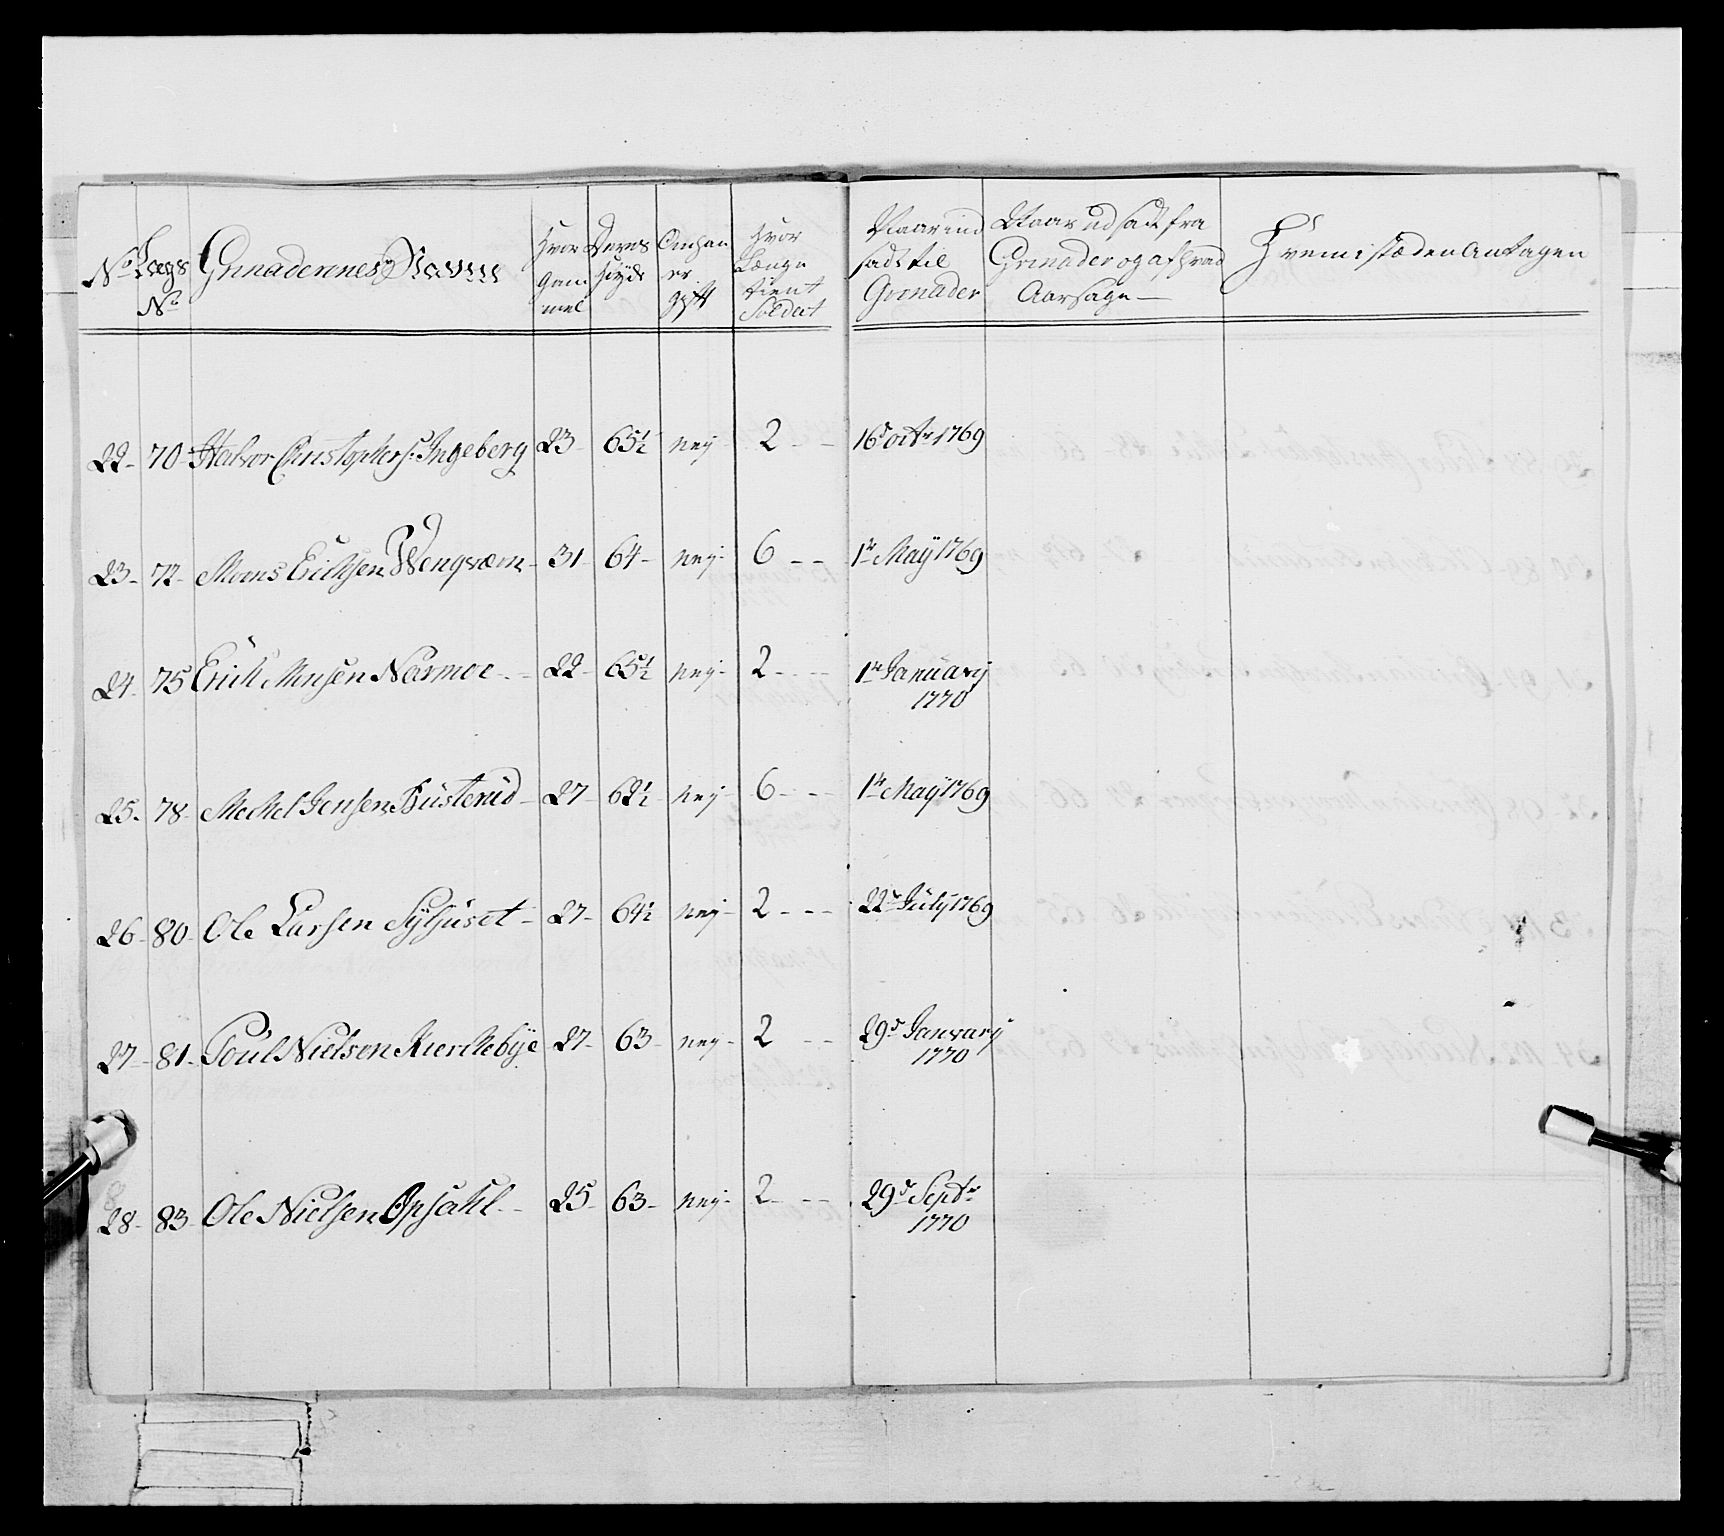 No Lægs No Grenaderernes Navne Hvor Gammel Deres Høyde Om han er gift Hvor Længe tient Soldat Naar ind sadt til Grenader Naar ud sadt fra Grenader og af hvad Aarsage Hvem i stæden Antagen
22 - 70 - Halvor Christophers: Ingeberg 23 65½ nej 2 - - 16d octr 1769
23 - 72 - Moens Erichsen Wengværn - 31 64 - nej - 6 - - 1te Maÿ 1769
24 - 75 Erich Monsen Nærmoe - - 22 - 65½ nej - 2 - - - 1te Januarij 1770
25 - 78 - Mechel Jensen Busterud - 27 - 62½ nej - 6 - - - 1te Maÿ 1769
26 - 80 - Ole Larsen Sÿljuset - 27 - 64½ nej - 2 - - - 22de Julÿ 1769
27 - 81 - Poul Nielsen Kierckebÿe 27 - 63 - nej - 2 - - 29d January 1770
28 - 83 - Ole Nielsen Opsahl - - 25 - 63 - nej - 2 - - - 29d Septr 1770